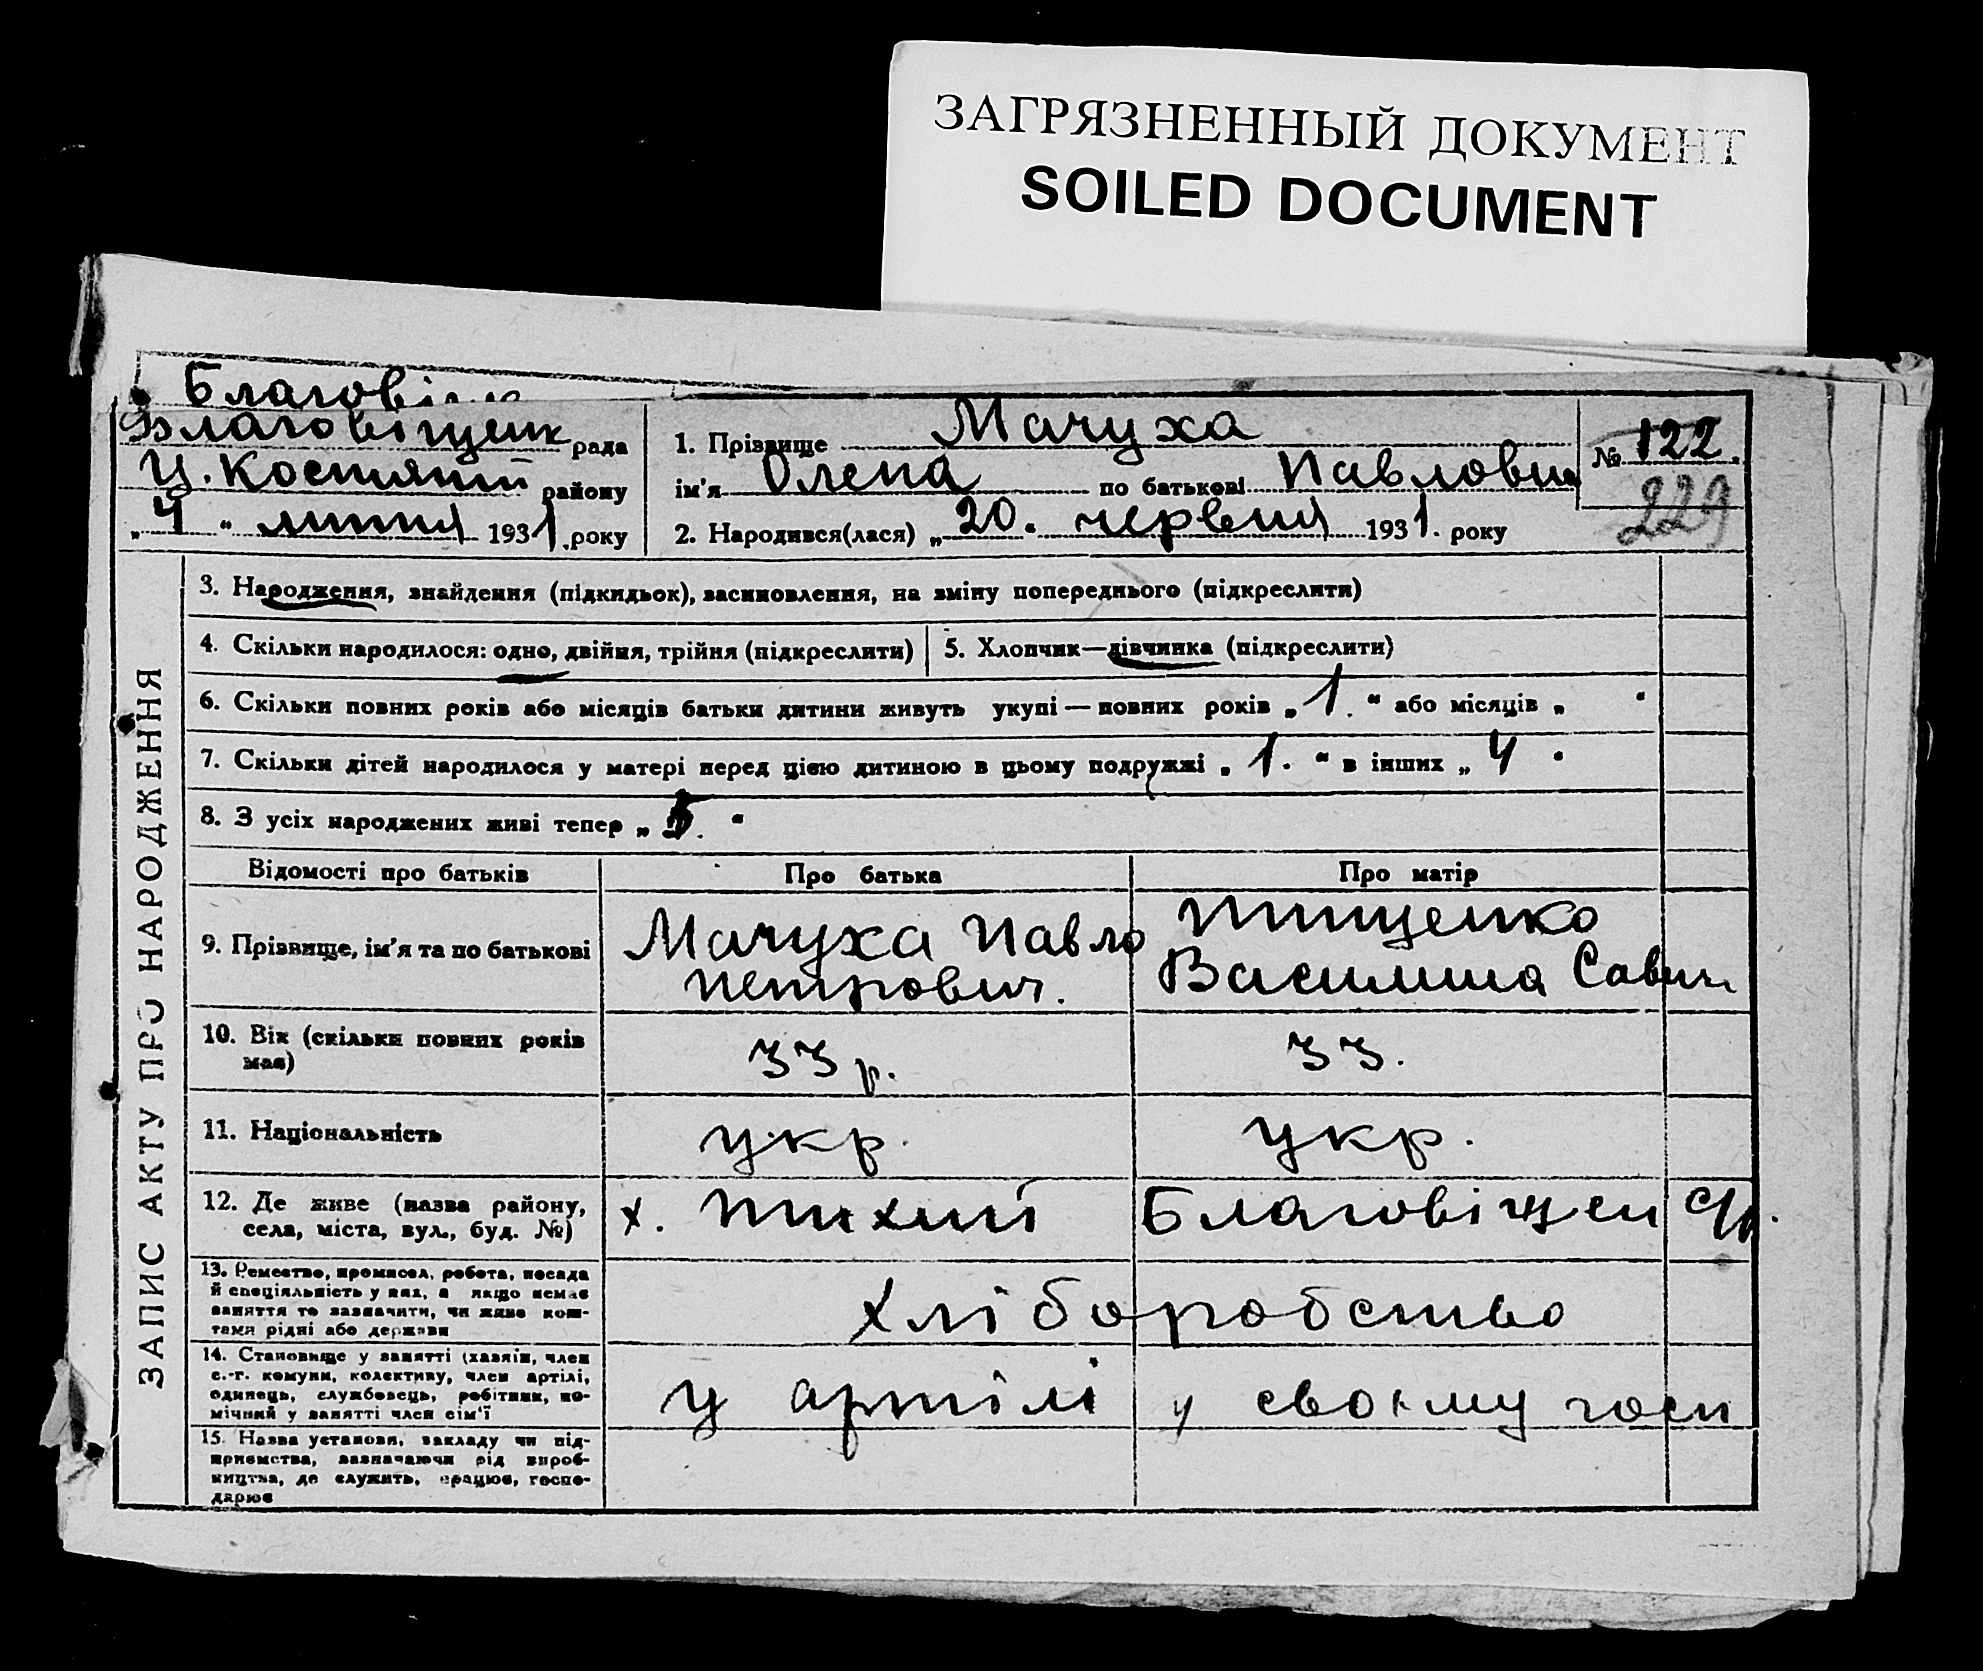 ЗАГРЯЗНЕННЫЙ ДОКУМЕНТ
SOILED DOCUMENT
Благовіщ
Благовіщен рада
Ц. Костянтй району
„ 4 “ липня 1931 року
1. Прізвище Мачуха
ім'я Олена по батькові Павловн
2. Народився(лася) „20. червня 1931. року
№ 122.
229
ЗАПИС АКТУ ПРО НАРОДЖЕННЯ
3. Народження, знайдення (підкидьок), засиновлення, на зміну попереднього (підкреслити)
4. Скільки народилося: одно, двійня, трійня (підкреслити)
5. Хлопчик—дівчинка (підкреслити)
6. Скільки повних років або місяців батьки дитини живуть укупі — повних років „ 1. “ або місяців „ “
7. Скільки дітей народилося у матері перед цією дитиною в цьому подружжі „ 1. “ в інших „ 4 “
8. З усіх народжених живі тепер „ 5. “
Відомості про батьків
Про батька
Про матір
9. Прізвище, ім'я та по батькові
Мачуха Павло
Петрович.
Тищенко
Василина Савич
10. Вік (скільки повних років
має)
33 р.
33.
11. Національність
укр.
укр.
12. Де живе (назва району,
села, міста, вул., буд. №)
х. Тихий
Благовіщен с/р.
13. Ремество, промисел, робота, посада
й спеціяльність у них, а якщо немає
заняття то зазначити, чи живе кош-
тами рідні або держави
хліборобство
14. Становище у занятті (хазяїн, член
с.-г. комуни, колективу, член артілі,
одинець, службовець, робітник, по-
мічний у занятті член сім'ї
у артілі
у своєму госп
15. Назва установи, закладу чи під-
приємства, зазначаючи рід вироб-
ництва, де служить, працює, госпо-
дарює